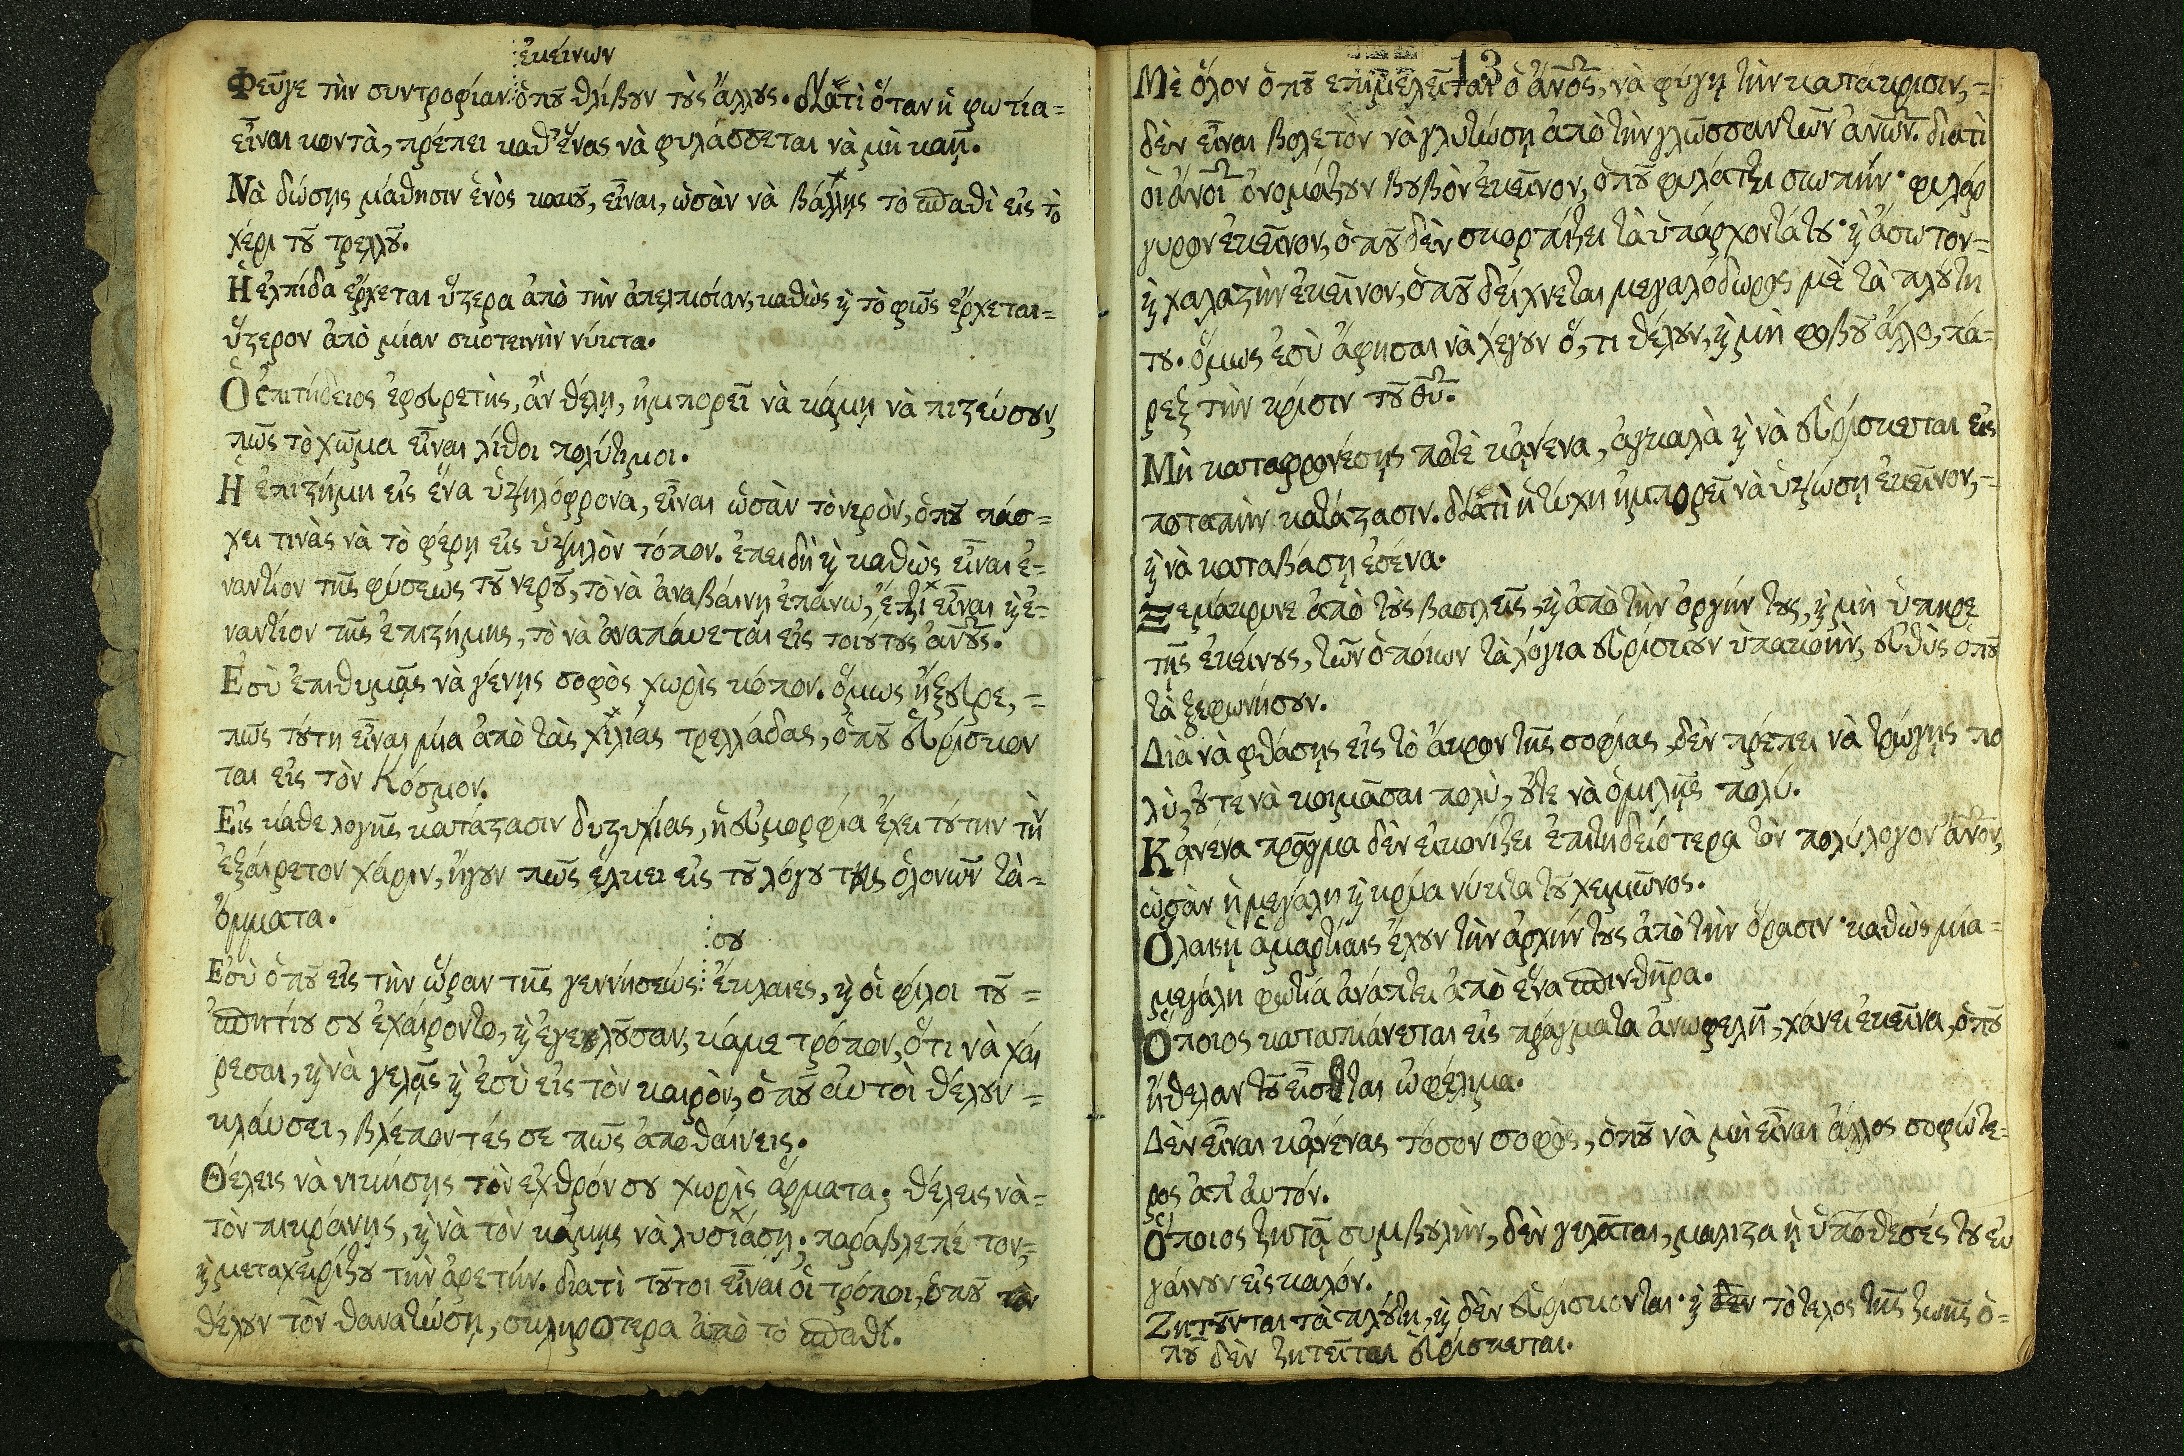 ἐκείνων
Φεῦγε τὴν συντροφίαν ὁποῦ θλίβουν τοὺς ἄλλους. διατὶ ὅταν ἡ φωτία-
εἶναι κοντὰ, πρέπει καθ' ἕνας νὰ φυλάσσεται νὰ μὴ καῇ.
Νὰ δώσῃς μάθησιν ἑνὸς κακοῦ, εἶναι, ὡσὰν νὰ βάλῃς τὸ σπαθὶ εἰς τὸ
χέρι τοῦ τρελλοῦ.
Ἡ ἐλπίδα ἔρχεται ὕστερα ἀπὸ τὴν ἀπελπισίαν, καθὼς ϗ τὸ φῶς ἔρχεται=
ὕστερον ἀπὸ μίαν σκοτεινὴν νύκτα.
Ὁ ἐπιτήδειος ἐφευρετὴς, ἂν θέλῃ, ἠμπορεῖ νὰ κάμῃ νὰ πιστεύσουν,
πῶς τὸ χῶμα εἶναι λίθοι πολύτιμοι.
Ἡ ἐπιστήμη εἰς ἕνα ὑψηλόφρονα, εἶναι ὡσὰν τὸ νερὸν, ὁποῦ πάσ=
χει τινὰς νὰ τὸ φέρῃ εἰς ὑψηλὸν τόπον. ἐπειδὴ ϗ καθὼς εἶναι ἐ-
ναντίον τῆς φύσεως τοῦ νεροῦ, τὸ νὰ ἀναβαίνῃ ἐπάνω, ἔτζι εἶναι ϗ ἐ-
ναντίον τῆς ἐπιστήμης, τὸ νὰ ἀναπαύεται εἰς τοιούτους ἀνους.
Ἐσὺ ἐπιθυμᾷς νὰ γένῃς σοφὸς χωρὶς κόπον. ὅμως ἤξευρε, =
πῶς τούτη εἶναι μία ἀπὸ τὰς χιλίας τρελλάδας, ὁποῦ εὑρίσκον
ται εἰς τὸν Κόσμον.
Εἰς κάθε λογῆς κατάστασιν δυστυχίας, ἡ εὐμορφία ἔχει τούτην τὴν
ἐξαίρετον χάριν, ἤγουν πῶς ἕλκει εἰς τοῦ λόγου της ὁλονῶν τὰ-
ὄμματα.
σου
Ἐσὺ ὁποῦ εἰς τὴν ὥραν τῆς γεννήσεώς ἔκλαιες, ϗ οἱ φίλοι τοῦ =
σπητίου σου ἐχαίροντο, ϗ ἐγελοῦσαν, κάμε τρόπον, ὅτι νὰ χαί
ρεσαι, ϗ νὰ γελᾷς ϗ ἐσὺ εἰς τὸν καιρὸν, ὁποῦ αὐτοὶ θέλουν =
κλαύσει, βλέποντές σε πῶς ἀποθαίνεις.
Θέλεις νὰ νικήσῃς τὸν ἐχθρόν σου χωρὶς ἅρματα; θέλεις νὰ-
τὸν πικράνῃς, ϗ νὰ τὸν κάμῃς νὰ λυσιάσῃ; παράβλεπέ τον,=
ϗ μεταχειρίζου τὴν ἀρετήν. διατὶ τοῦτοι εἶναι οἱ τρόποι, ὁποῦ
θέλουν τὸν θανατώσῃ, σκληρότερα ἀπὸ τὸ σπαθί.
13
Μὲ ὅλον ὁποῦ ἐπιμελεῖται ὁ ἄνος, νὰ φύγῃ τὴν κατάκρισιν, =
δὲν εἶναι βολετὸν νὰ γλυτώσῃ ἀπὸ τὴν γλῶσσαν τῶν ἀνων. διατὶ
οἱ ἄνοι ὀνομάζουν βουβὸν ἐκεῖνον, ὁποῦ φυλάττει σιωπήν· φιλάρ
γυρον ἐκεῖνον, ὁποῦ δὲν σκορπίζει τὰ ὑπάρχοντά του· ϗ ἄσωτον=
ϗ χαλαστὴν ἐκεῖνον, ὁποῦ δείχνεται μεγαλόδωρος μὲ τὰ πλούτη
του. ὅμως ἐσὺ ἄφησαι νὰ λέγουν ὅ, τι θέλουν, ϗ μὴ φοβοῦ ἄλλο, πά-
ρεξ τὴν κρίσιν τοῦ θυ.
Μὴ καταφρονέσῃς ποτὲ κᾀνένα, ἀγκαλὰ ϗ νὰ εὑρίσκεται εἰς
ποταπὴν κατάστασιν. διατὶ ἡ τύχη ἠμπορεῖ νὰ ὑψώσῃ ἐκεῖνον, -
ϗ νὰ καταβάσῃ ἐσένα.
Ξεμάκρυνε ἀπὸ τοὺς βασιλεῖς, ϗ ἀπὸ τὴν ὀργήν τους, ϗ μὴ ὑπηρε
τῇς ἐκείνους, τῶν ὁποίων τὰ λόγια εὑρίσκουν ὑπακοὴν, εὐθὺς ὁποῦ
τὰ ξεφωνήσουν.
Διὰ νὰ φθάσῃς εἰς τὸ ἄκρον τῆς σοφίας, δὲν πρέπει νὰ τρώγῃς πο
λὺ, οὔτε νὰ κοιμᾶσαι πολὺ, οὔτε νὰ ὁμιλῇς πολύ.
Κᾀνένα πρᾶγμα δὲν εἰκονίζει ἐπιτηδειότερα τὸν πολύλογον ἄνον,
ὡσὰν ἡ μεγάλη ϗ κρύα νύκτα τοῦ χειμῶνος.
Ὅλαις ᾑ ἁμαρτίαις ἔχουν τὴν ἀρχήν τους ἀπὸ τὴν ὅρασιν· καθὼς μία-
μεγάλη φωτία ἀνάπτει ἀπὸ ἕνα σπινθῆρα.
Ὅποιος καταπιάνεται εἰς πράγματα ἀνωφελῆ, χάνει ἐκεῖνα, ὁποῦ
ἤθελαν τοῦ εἶσται ὠφέλιμα.
Δὲν εἶναι κᾀνένας τόσον σοφὸς, ὁποῦ νὰ μὴ εἶναι ἄλλος σοφώτε-
ρος ἀπ' αὐτόν.
Ὅποιος ζητᾷ συμβουλὴν, δὲν γελᾶται, μάλιστα ᾑ ὑπόθεσές του εὐ
γαίνουν εἰς καλόν.
Ζητοῦνται τὰ πλούτη, ϗ δὲν εὑρίσκονται· ϗ τὸ τέλος τῆς ζωῆς ὁ-
ποῦ δὲν ζητεῖται εὑρίσκεται.